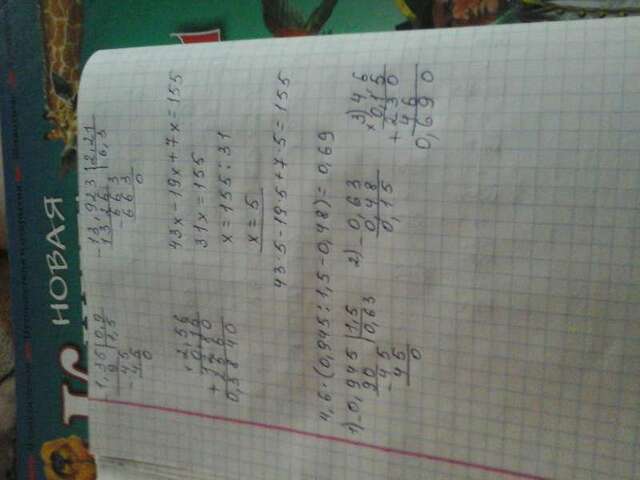 НОВАЯ
- 1,35 | 0,9
9 | 1,5
- 45
45
0
- 13,923 | 2,21
1326 | 6,3
- 663
663
0
× 2,56
0,15
+ 256
0,3840
43x - 19x + 7x = 155
31x = 155
x = 155 : 31
x = 5
43·5 - 19·5 + 7·5 = 155
4,6·(0,945 : 1,5 - 0,48) = 0,69
1) - 0,945 | 1,5
90 | 0,63
- 45
45
0
2) - 0,63
0,48
0,15
3) × 4,6
0,15
+ 230
46
0,690